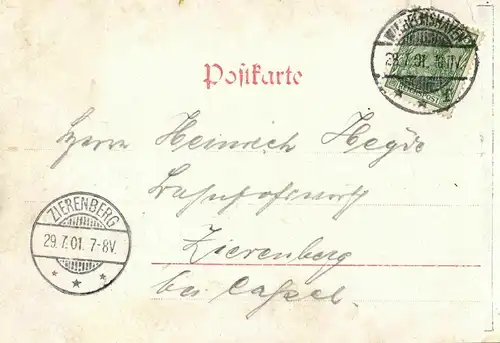 WILHELMSHAVEN
29.7.01. 10-11V.
Postkarte
Herrn Heinrich Heyde
Bahnhofswirth
Zierenberg
bei Cassel.
ZIERENBERG
29.7.01. 7-8V.